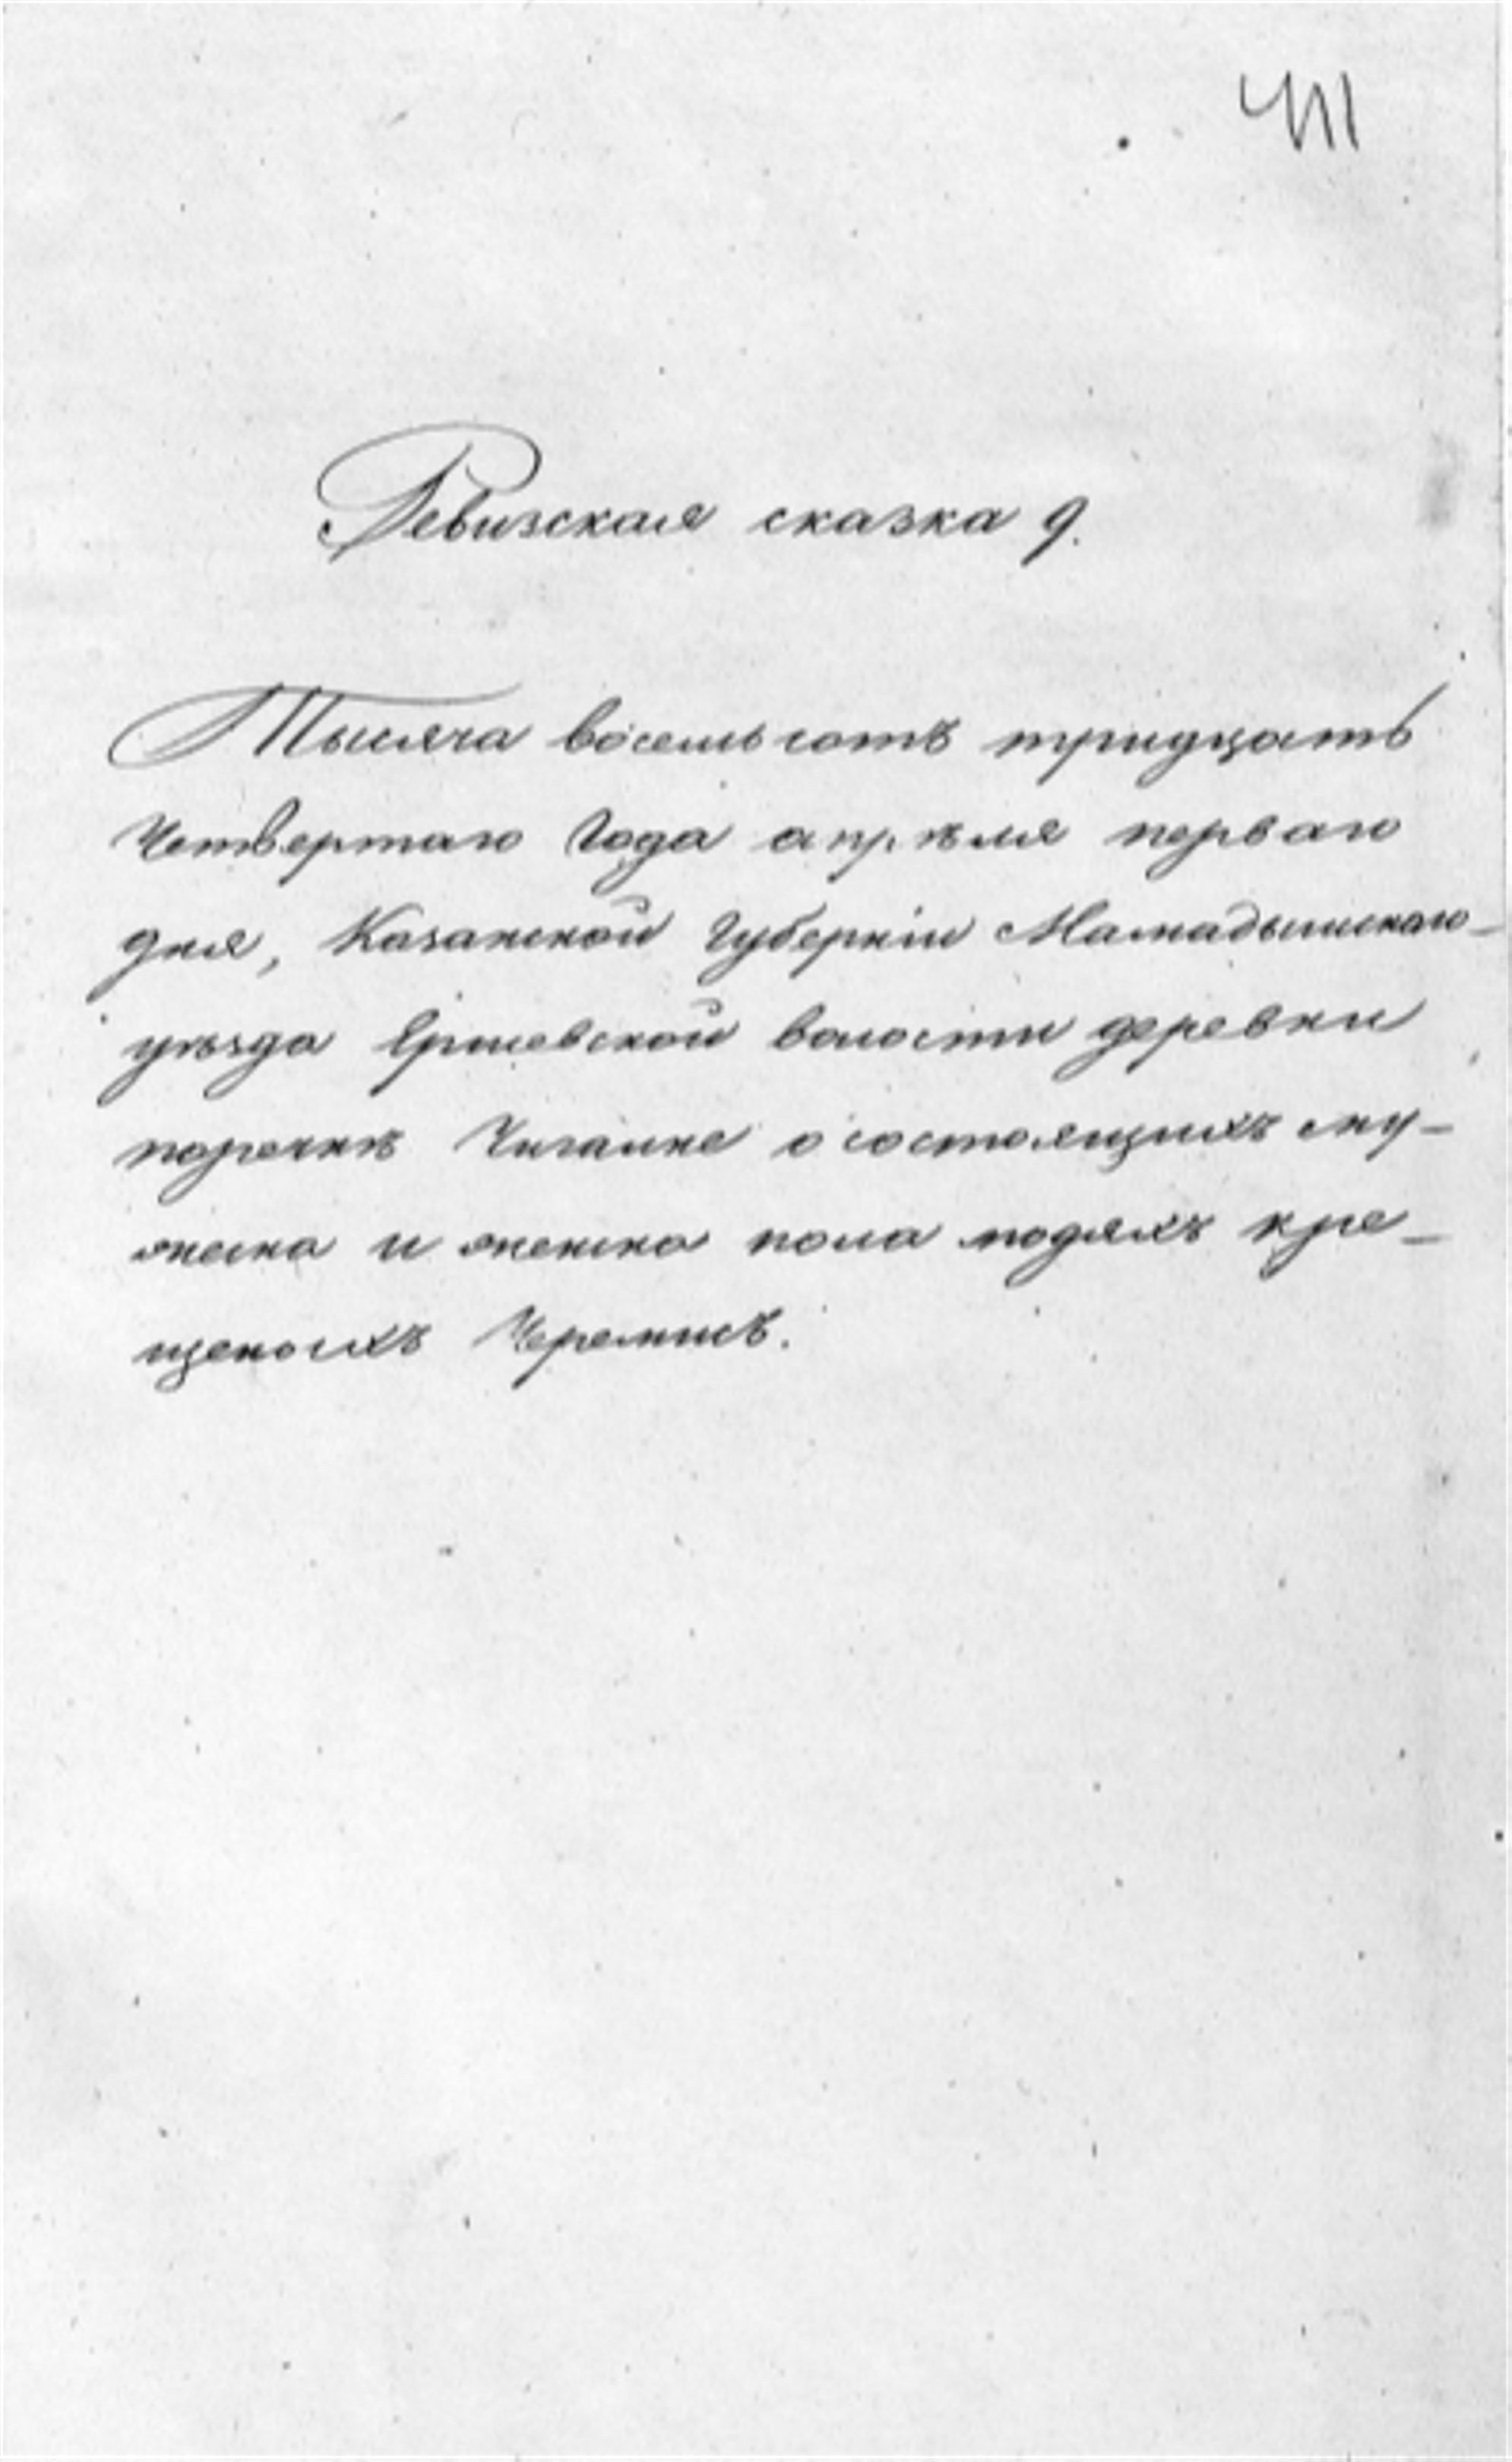 411
Ревизская сказка 9.
Тысяча восемьсотъ тридцать
Четвертаго Года апрѣля перваго
дня, Казанской Губерніи Мамадышскаго
уѣзда Ершевской волости деревни
поречкѣ о состоящихъ му-
жеска и женска пола людяхъ кре-
щеныхъ Черемисъ.